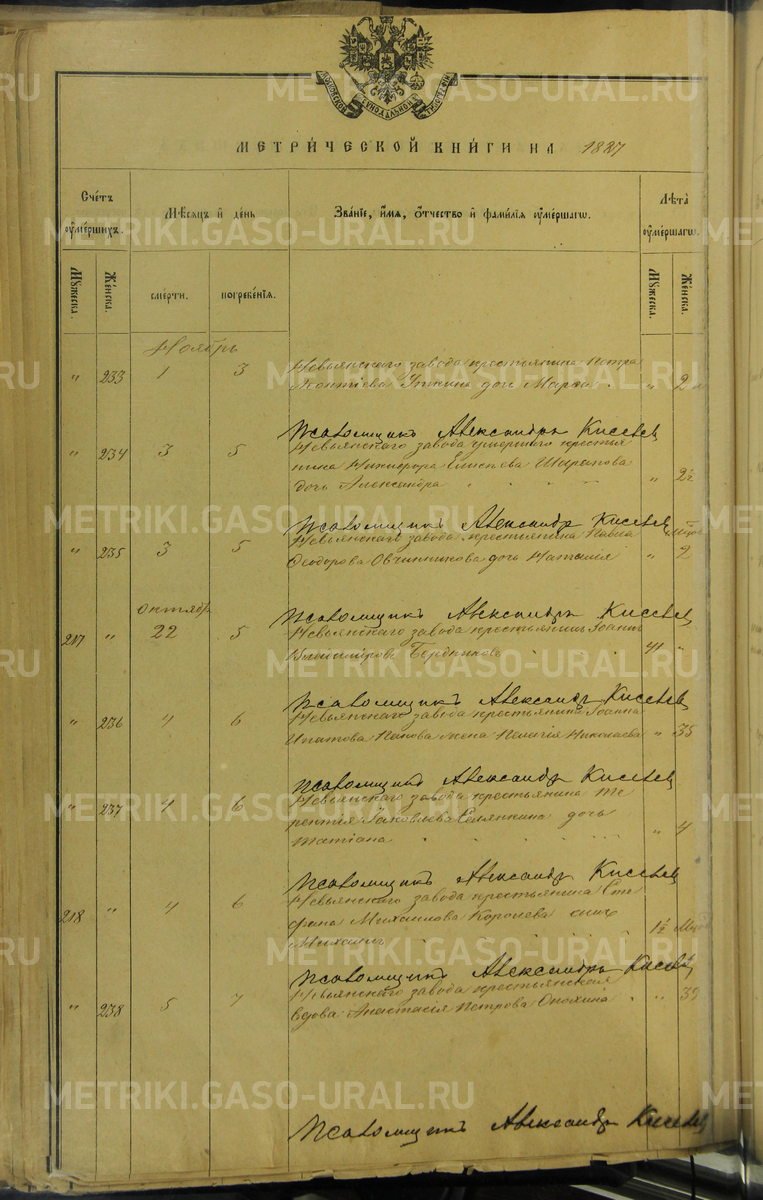 МЕТРИЧЕСКОЙ КНИГИ НА 1887
Счетъ умершихъ.
Мѣсяцъ и день
Званіе, имя, отчество и фамилія умершаго.
Лѣта умершаго
Мужеска.
Женска.
смерти.
погребенія.
Мужеска.
Женска.
Ноябрь
" 233 1 3 Невьянскаго завода крестьянина Петра
Леонтіева дочь Марія " 2
Псаломщикъ Александръ Киселевъ
" 234 3 5 Невьянскаго завода умершаго крестья
нина Никифора Елисѣева Шарапова
дочь Александра " 2½
Псаломщикъ Александръ Киселевъ
" 235 3 5 Невьянскаго завода крестьянина Павла
Ѳеодорова Овчинникова дочь Наталія " 2
Псаломщикъ Александръ Киселевъ
октябрь
217 " 22 5 Невьянскаго завода крестьянинъ Іоаннъ
Владиміровъ 41 "
Псаломщикъ Александръ Киселевъ
" 236 4 6 Невьянскаго завода крестьянина Іоанна
Ипатова Попова жена Пелагія Николаева " 35
Псаломщикъ Александръ Киселевъ
" 237 4 6 Невьянскаго завода крестьянина Те
рентія Іаковлева Селянкина дочь
Татіана " 4
Псаломщикъ Александръ Киселевъ
218 " 4 6 Невьянскаго завода крестьянина Сте
фана Михаилова Королева сынъ
Михаилъ 1½
Псаломщикъ Александръ Киселевъ
" 238 5 7 Невьянскаго завода крестьянская
вдова Анастасія Петрова "
Псаломщикъ Александръ Киселевъ
METRIKI.GASO-URAL.RU